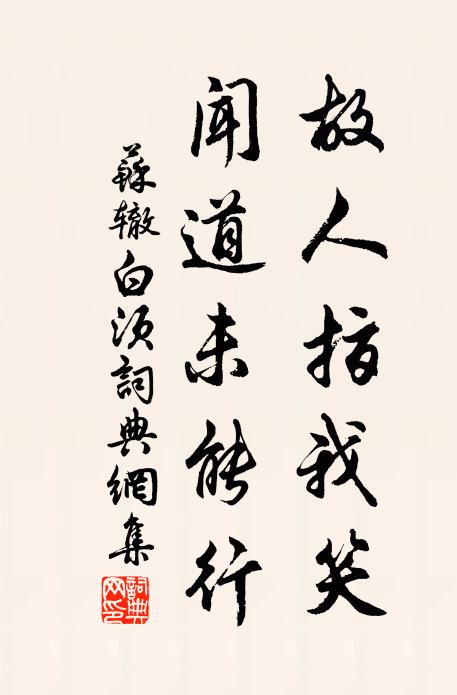 故人指我笑
聞道未能行
蘇辙白须詞典網集
詞典网印